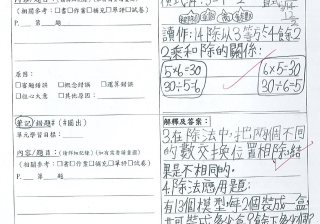 (相關參考：□書□作業□補充□單評□試卷)
P.___第___題
原因：
□審題錯誤 □概念錯誤 □運算錯誤
□粗心大意 □其他原因：
筆記/錯題#(#圈出)
單元學習目標：
內容/題目：
(相關參考：□書□作業□補充□單評□試卷)
P.___第___題
讀作:14除以3等於4餘2
2.乘和除的關係:
5×6=30
30÷5=6
6×5=30
30÷6=5
解釋及答案：
3.在除法中,把兩個不同
的數交換位置相除,結
果是不相同的.
4.除法應用題:
有13個模型,每2個裝成一盒